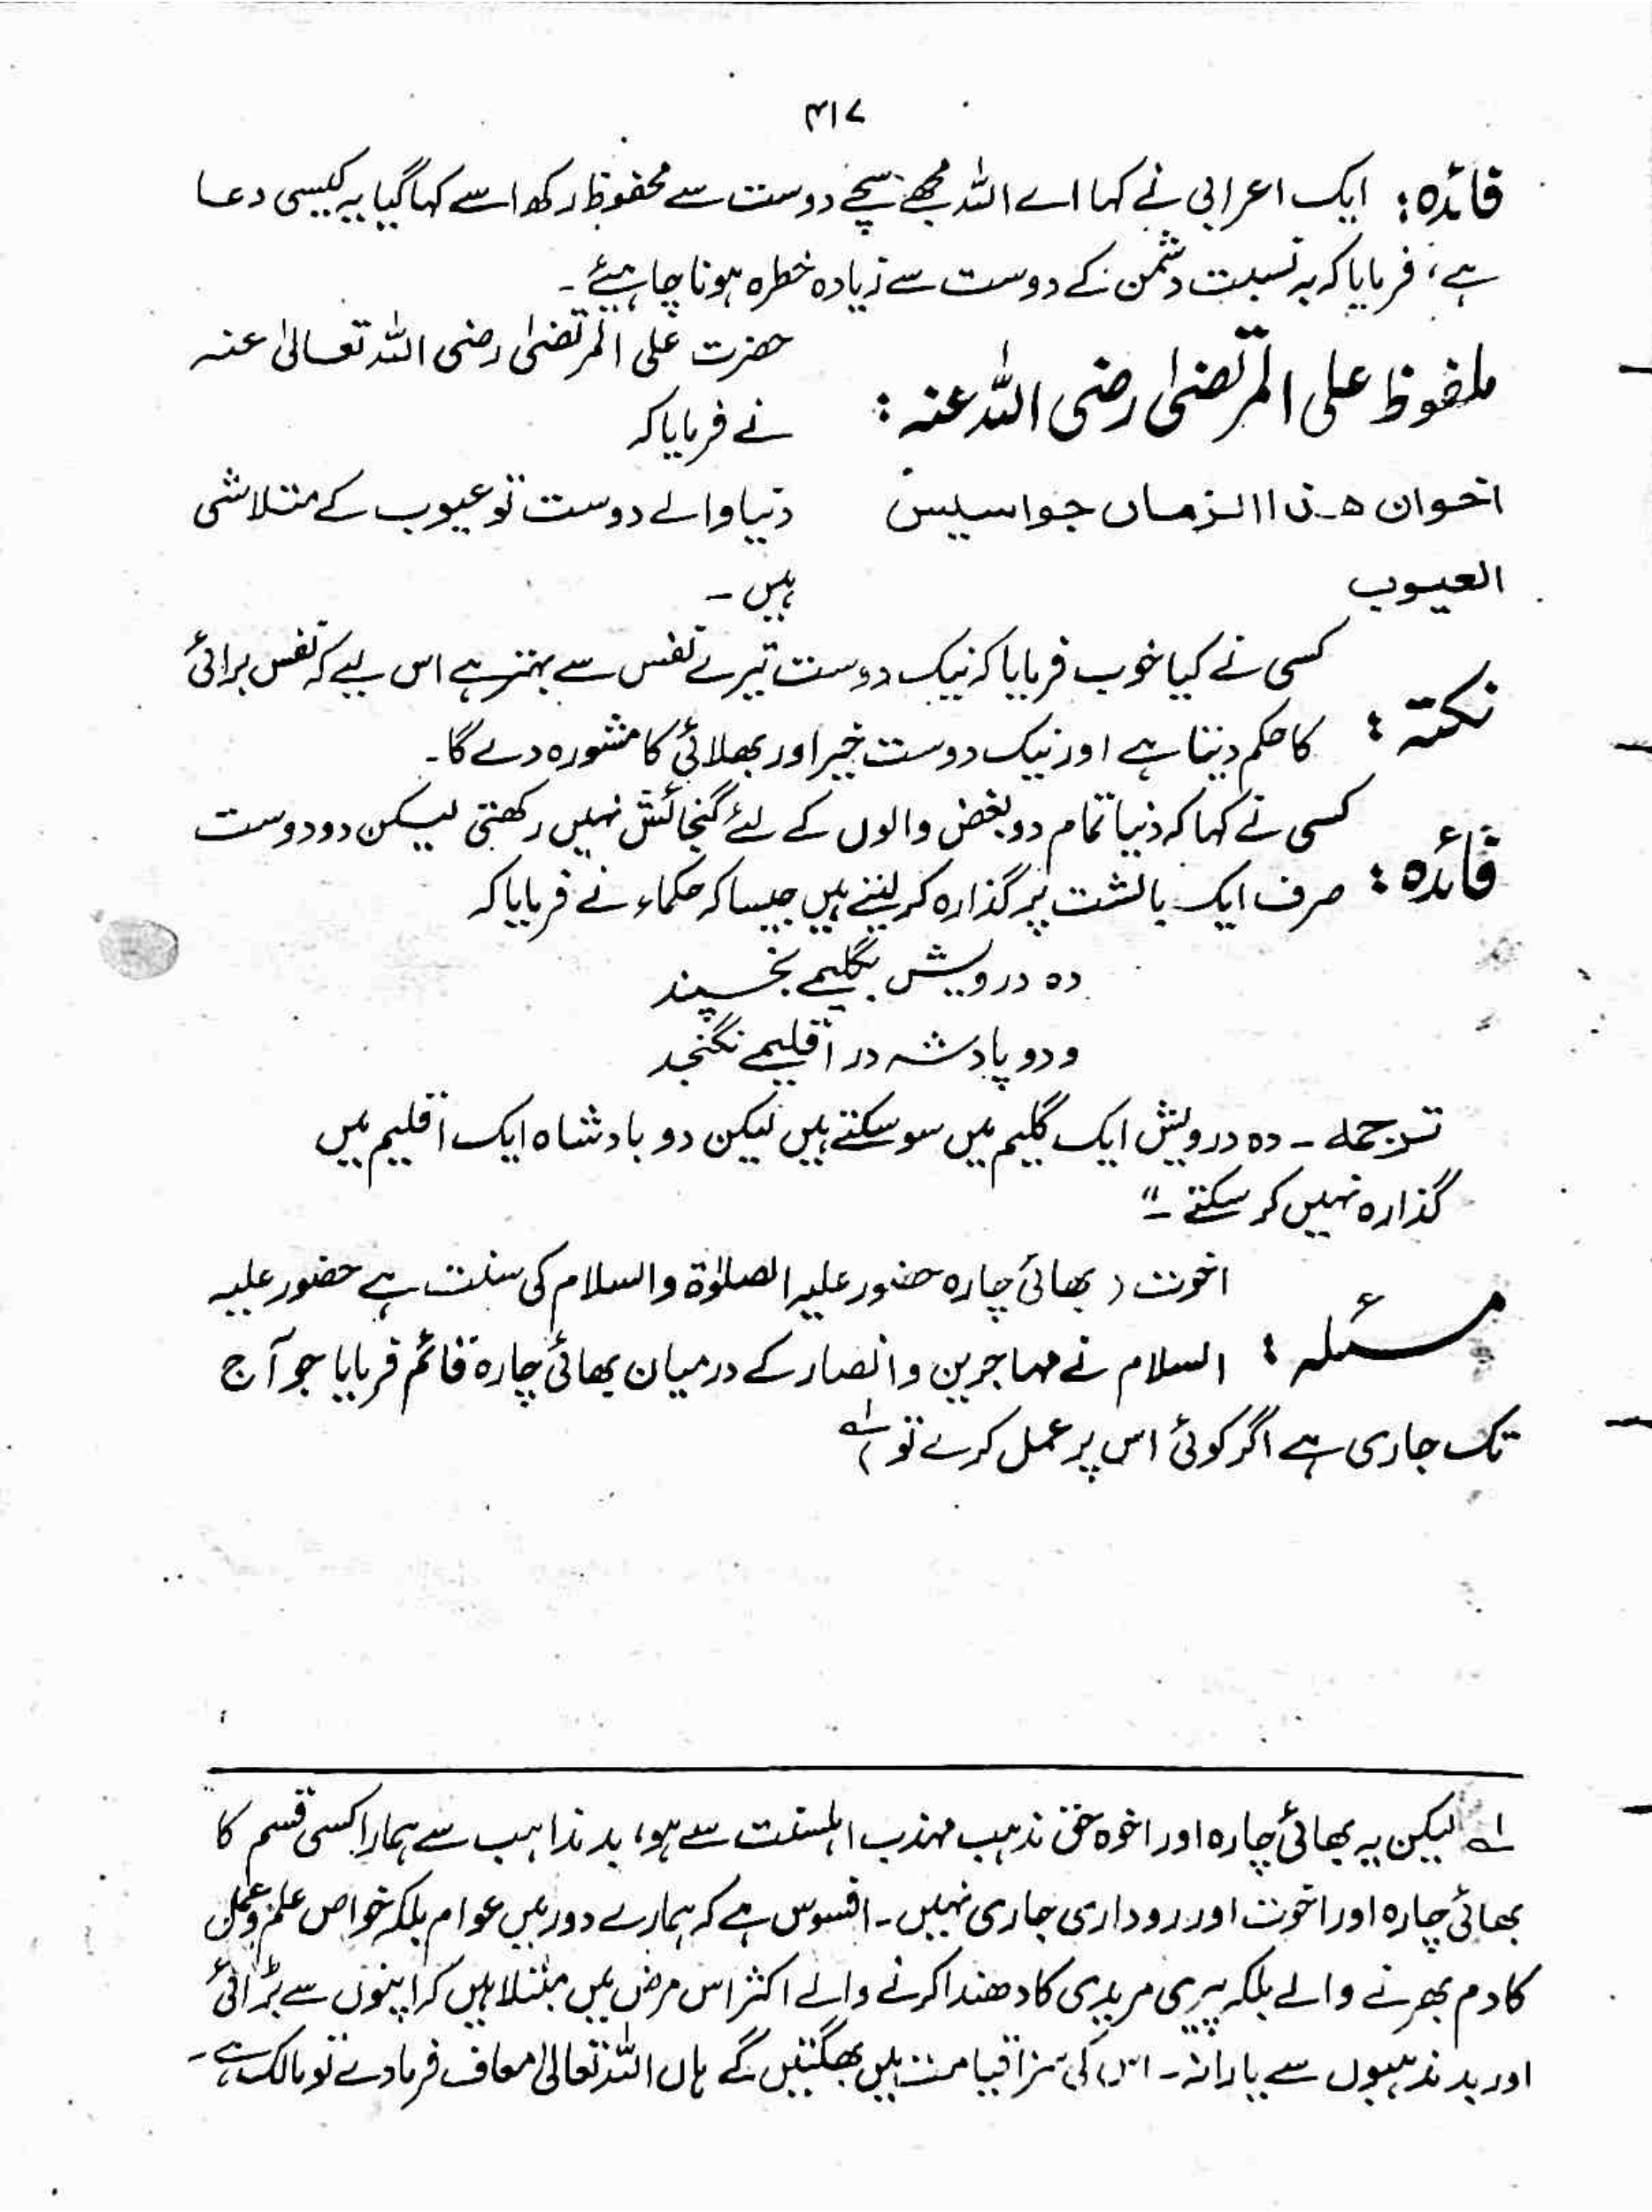 ۴۱۷
فائدہ: ایک اعرابی نے کہا اے اللہ مجھے سچے دوست سے محفوظ رکھ اسے کہا گیا یہ کیسی دعا
ہے، فرمایا کہ بہ نسبت دشمن کے دوست سے زیادہ خطرہ ہونا چاہیئے۔
ملفوظ علی المرتضیٰ رضی اللہ عنہ: حضرت علی المرتضیٰ رضی اللہ تعالیٰ عنہ
نے فرمایا کہ
اخوان ھذا الزمان جواسیس
العیوب
دنیا والے دوست تو عیوب کے متلاشی
ہیں۔
نکتہ: کسی نے کیا خوب فرمایا کہ نیک دوست تیرے نفس سے بہتر ہے اس لیے کہ نفس برائی
کا حکم دیتا ہے اور نیک دوست خیر اور بھلائی کا مشورہ دے گا۔
فائدہ: کسی نے کہا کہ دنیا تمام دو بغض والوں کے لئے گنجائش نہیں رکھتی لیکن دو دوست
صرف ایک بالشت پر گذارہ کر لیتے ہیں جیسا کہ حکماء نے فرمایا کہ
دہ درویش بگلیمے بخسپند
و دو پادشہ در اقلیمے نگنجد
ترجمہ۔ دہ درویش ایک گلیم میں سو سکتے ہیں لیکن دو بادشاہ ایک اقلیم میں
گذارہ نہیں کر سکتے۔"
مسئلہ: اخوت (بھائی چارہ حضور علیہ الصلوٰۃ والسلام کی سنت ہے حضور علیہ
السلام نے مہاجرین و انصار کے درمیان بھائی چارہ قائم فرمایا جو آج
تک جاری ہے اگر کوئی اس پر عمل کرے تو ؂۱
؂۱ لیکن یہ بھائی چارہ اور اخوہ حق مذہب مہذب اہلسنت سے ہو، بد مذاہب سے ہمارا کسی قسم کا
بھائی چارہ اور اخوت اور روداری جاری نہیں۔ افسوس ہے کہ ہمارے دور میں عوام بلکہ خواص علم و عمل
کا دم بھرنے والے بلکہ پیری مریدی کا دھندا کرنے والے اکثر اس مرض میں مبتلا ہیں کہ اپنوں سے بڑائی
اور بد مذہبوں سے یارانہ۔ اس کی سزا قیامت میں بھگتیں گے ہاں اللہ تعالیٰ معاف فرمادے تو مالک ہے۔